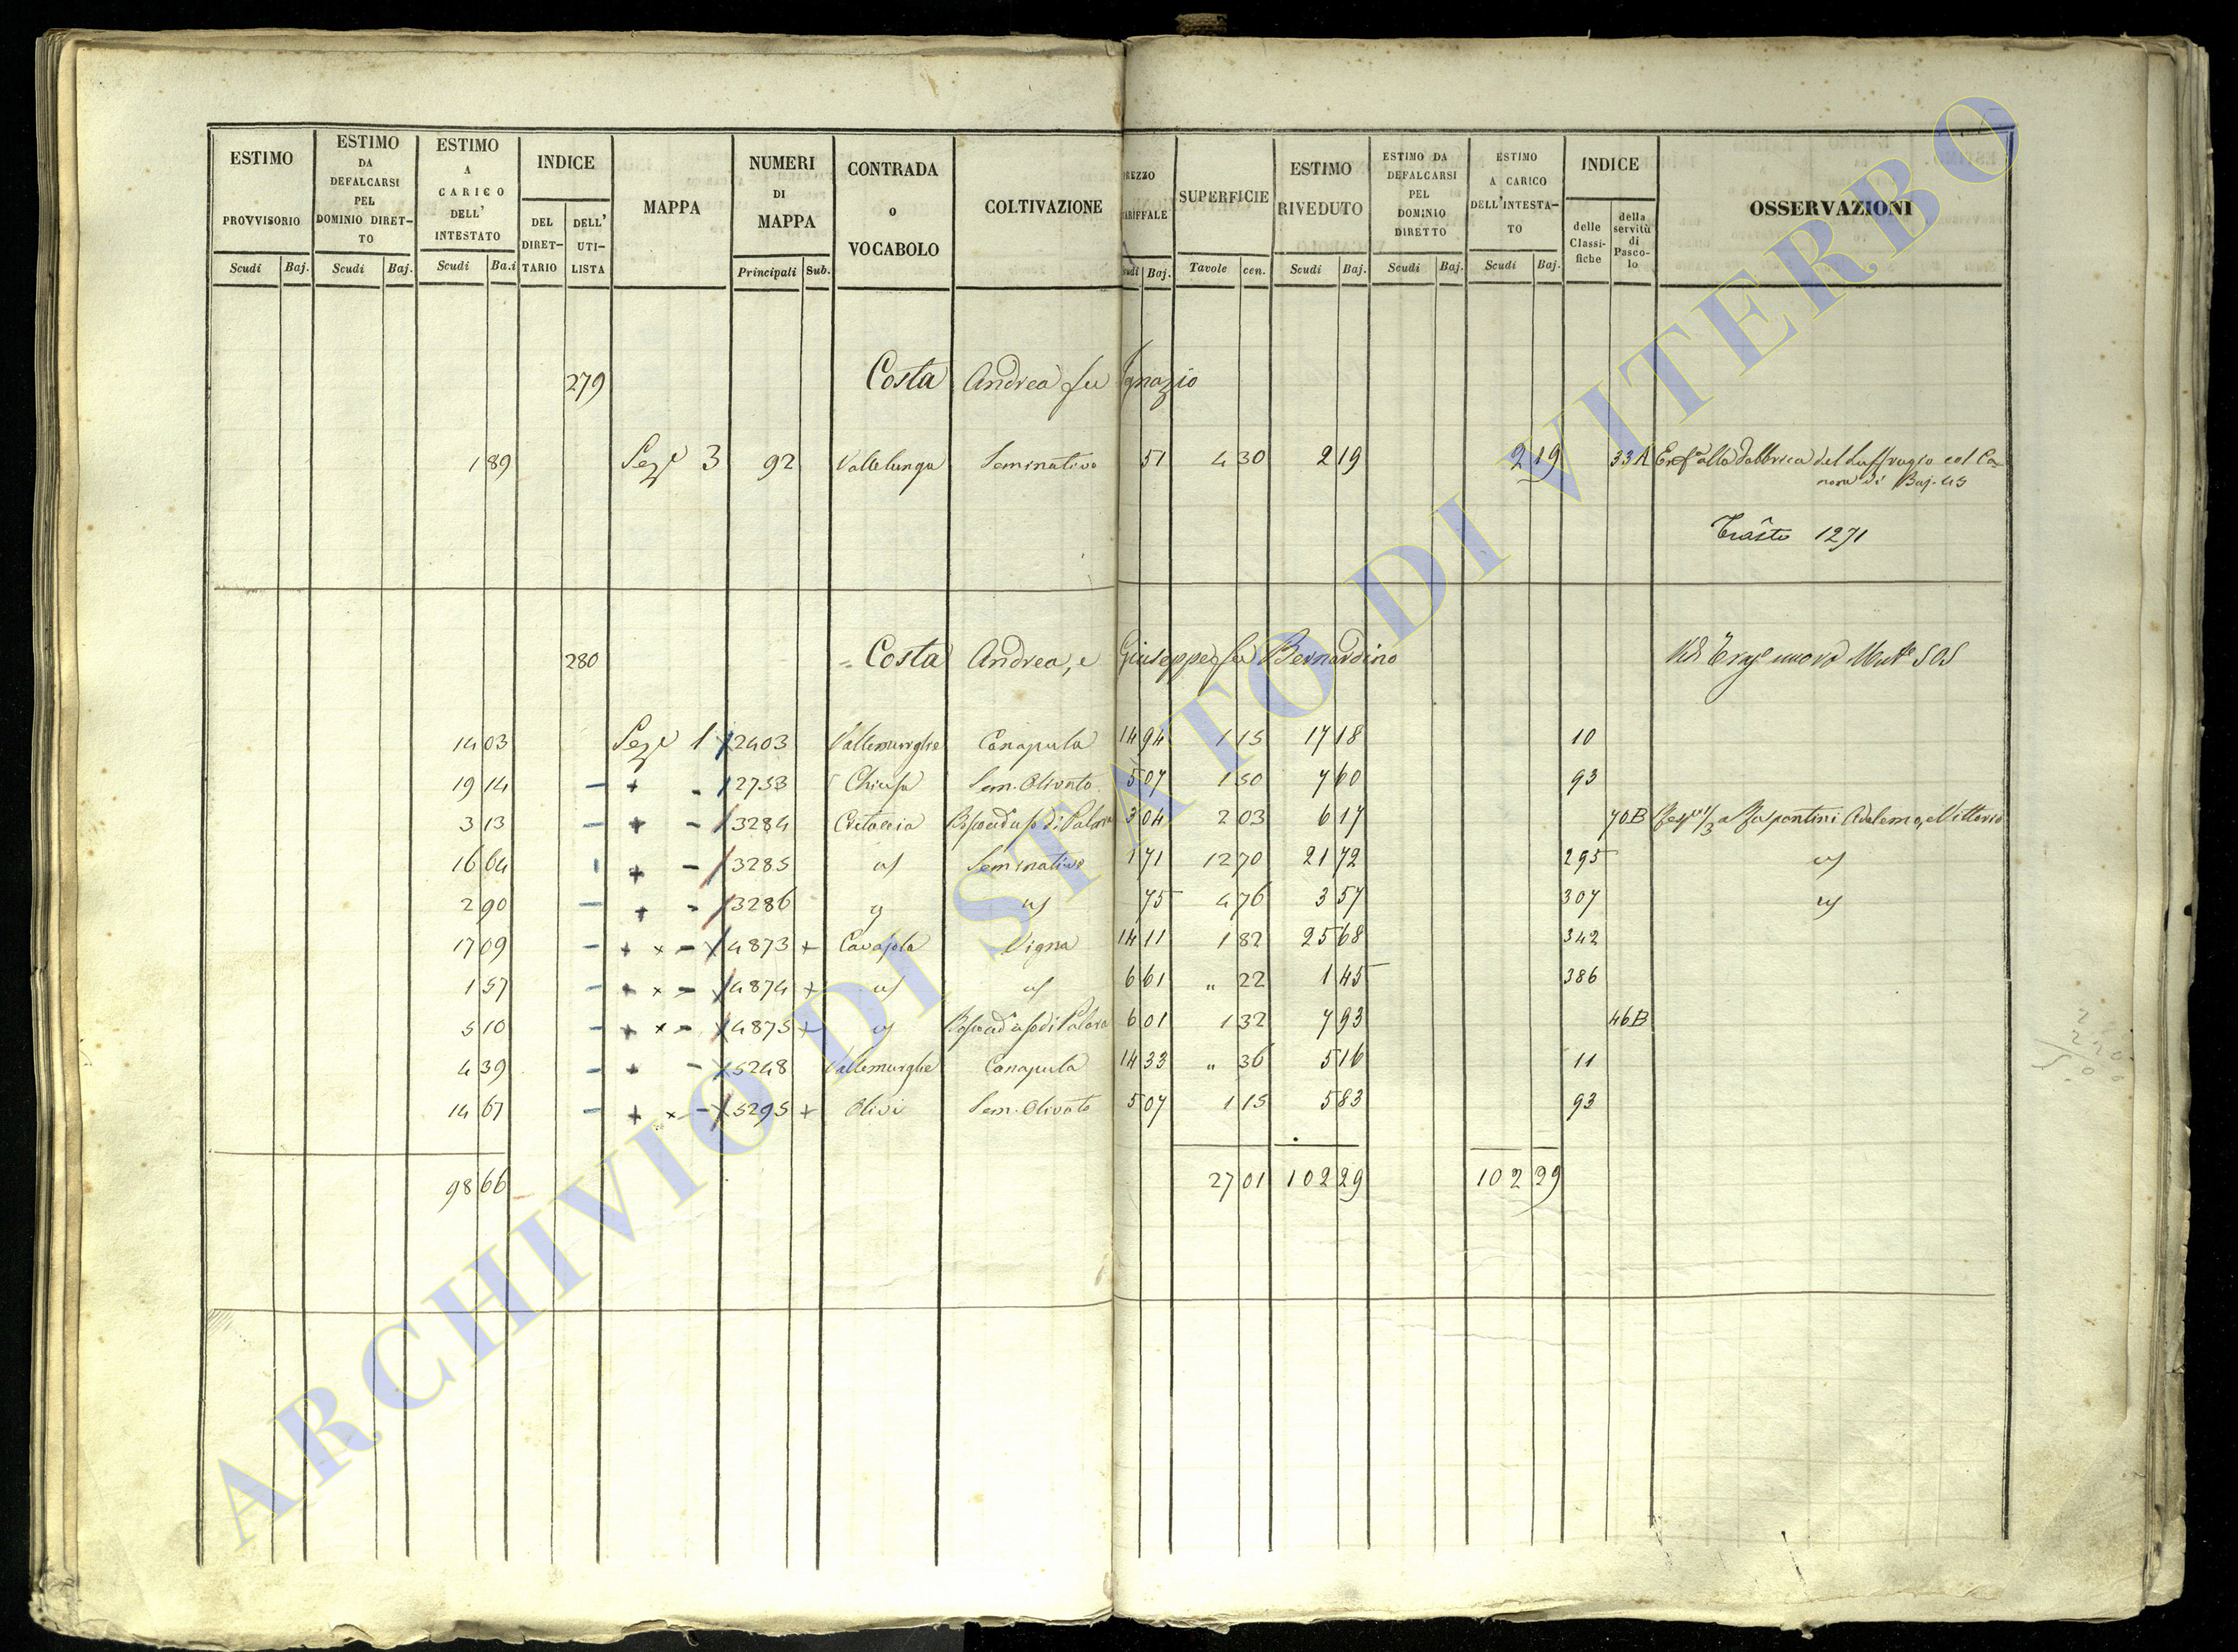 ESTIMO PROVVISORIO Scudi Baj.
ESTIMO DA DEFALCARSI PEL DOMINIO DIRET-TO Scudi Baj.
ESTIMO A CARICO DELL' INTESTATO Scudi Ba.i
INDICE DEL DIRET-TARIO DELL' UTI-LISTA
MAPPA
NUMERI DI MAPPA Principali Sub.
CONTRADA o VOCABOLO
COLTIVAZIONE
PREZZO TARIFFALE Scudi Baj.
SUPERFICIE Tavole cen.
ESTIMO RIVEDUTO Scudi Baj.
ESTIMO DA DEFALCARSI PEL DOMINIO DIRETTO Scudi Baj.
ESTIMO A CARICO DELL'INTESTA-TO Scudi Baj.
INDICE delle Classi-fiche della servitù di Pasco-lo
OSSERVAZIONI
279 Costa Andrea fu Ignazio
1 89 Sez.e 3 92 Vallelunga Seminativo 51 4 30 2 19 2 19 33 A Enf.a alla Fabbrica del Suffragio col Ca-
none di Baj. 45
Trasto 1271
280 Costa Andrea, e Giuseppe fu Bernardino
14 03 Sez.e 1 2403 Vallemuriglie Canapula 14 94 1 15 17 18 10
19 14 + - 2753 Chiusa Sem. Olivato 5 07 1 50 7 60 93
3 13 + - 3284 Cretaccia Bosco ced. uso di Palara 3 04 2 03 6 17 70 B
16 64 + - 3285 u/ Seminativo 1 71 12 70 21 72 295 u/
2 90 + - 3286 u/ u/ 75 4 76 3 57 307 u/
17 09 + x - 4873 + Cavajola Vigna 14 11 1 82 25 68 342
1 57 + x - 4874 + u/ u/ 6 61 " 22 1 45 386
5 10 + x - 4875 + u/ Bosco ced. uso di Palara 6 01 1 32 7 93 46 B
4 39 + - 5248 Vallemuriglie Canapula 14 33 " 36 5 16 11
14 67 + x - 5295 + Olivi Sem. Olivato 5 07 1 15 5 83 93
98 66 27 01 102 29 102 29
ARCHIVIO DI STATO DI VITERBO